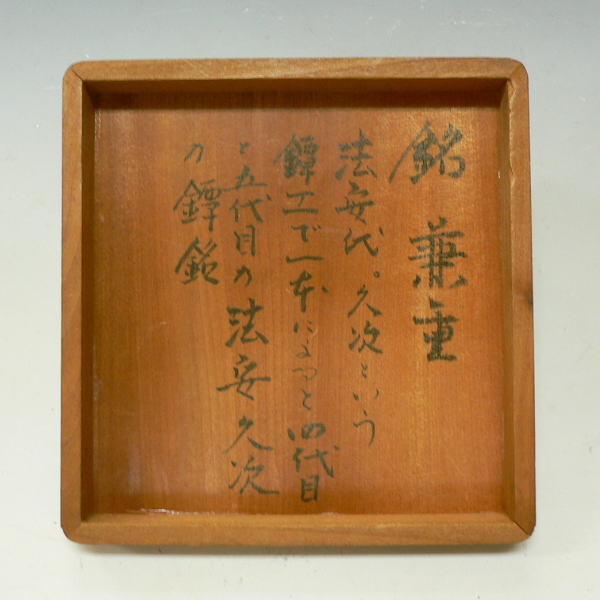 銘 兼重
法安代。久次という
鐔工で一本によると四代目
と五代目の法安久次
の鐔銘